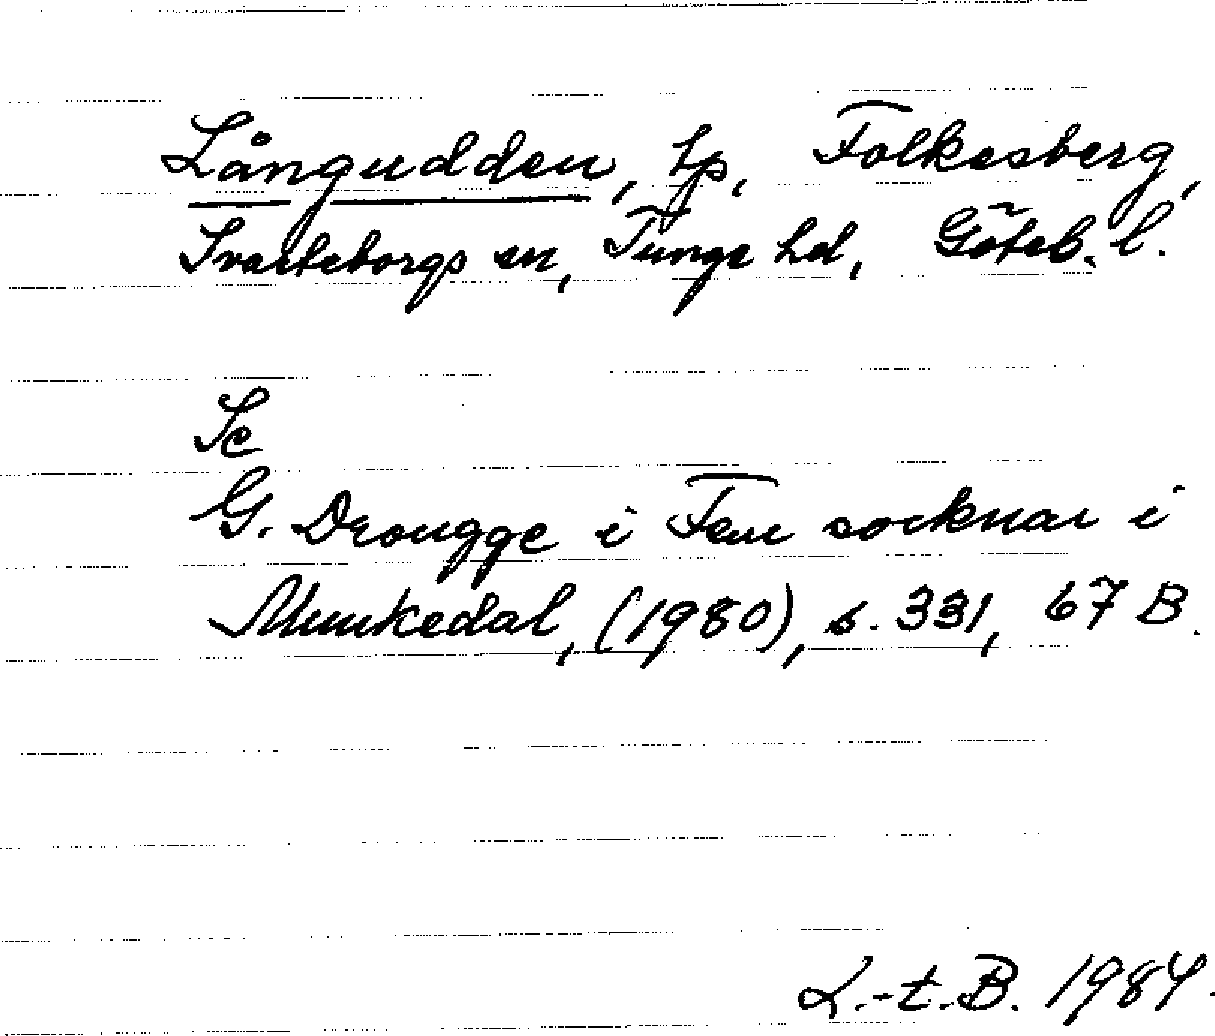 Långudden, lp, Folkesberg,
Svarteborgs sn, Tunge hd, Göteb. l.
Se
G. Drougge i Fem socknar i
Munkedal, (1980), s. 331, 67 B.
L.-t.B. 1984.